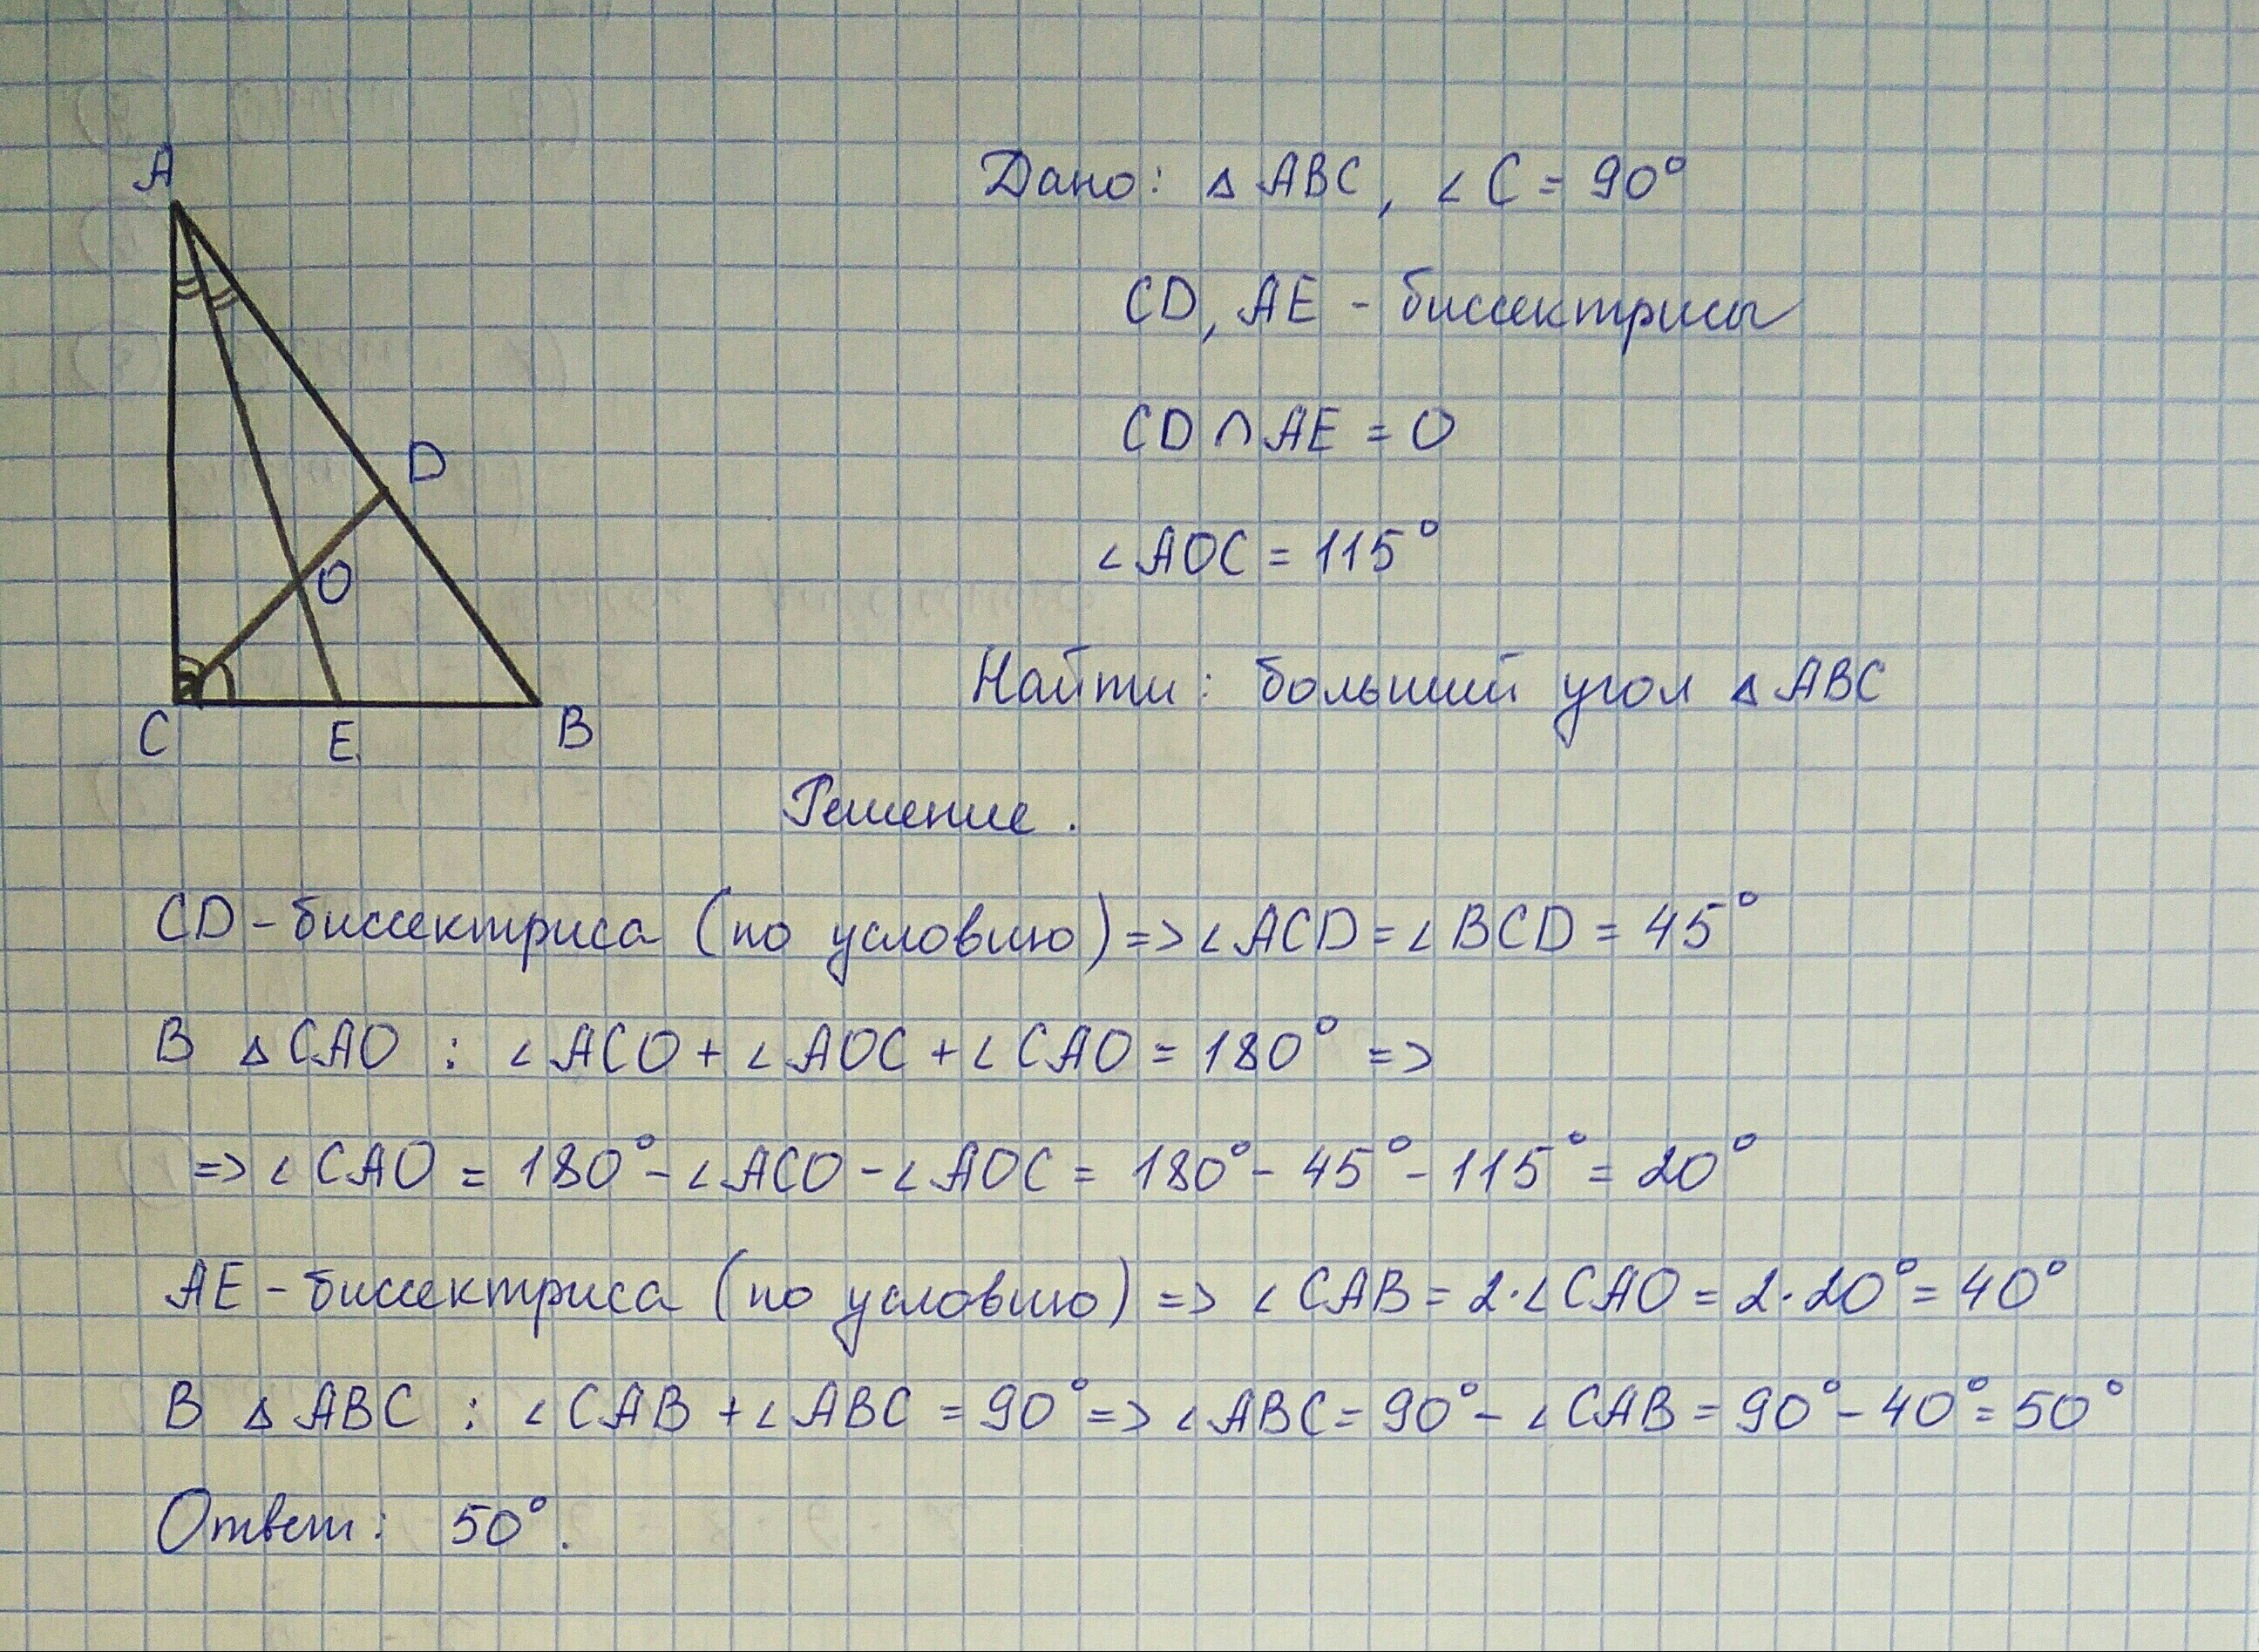 A
D
O
C E B
Дано: △ ABC, ∠ C = 90°
CD, AE - биссектрисы
CD ∩ AE = O
∠AOC = 115°
Найти: больший угол △ ABC
Решение.
CD - биссектриса (по условию) => ∠ ACD = ∠ BCD = 45°
В △ CAO : ∠ ACO + ∠ AOC + ∠ CAO = 180° =>
=> ∠ CAO = 180° - ∠ ACO - ∠ AOC = 180° - 45° - 115° = 20°
AE - биссектриса (по условию) => ∠ CAB = 2·∠ CAO = 2·20° = 40°
В △ ABC : ∠ CAB + ∠ ABC = 90° => ∠ ABC = 90° - ∠ CAB = 90° - 40° = 50°
Ответ: 50°.